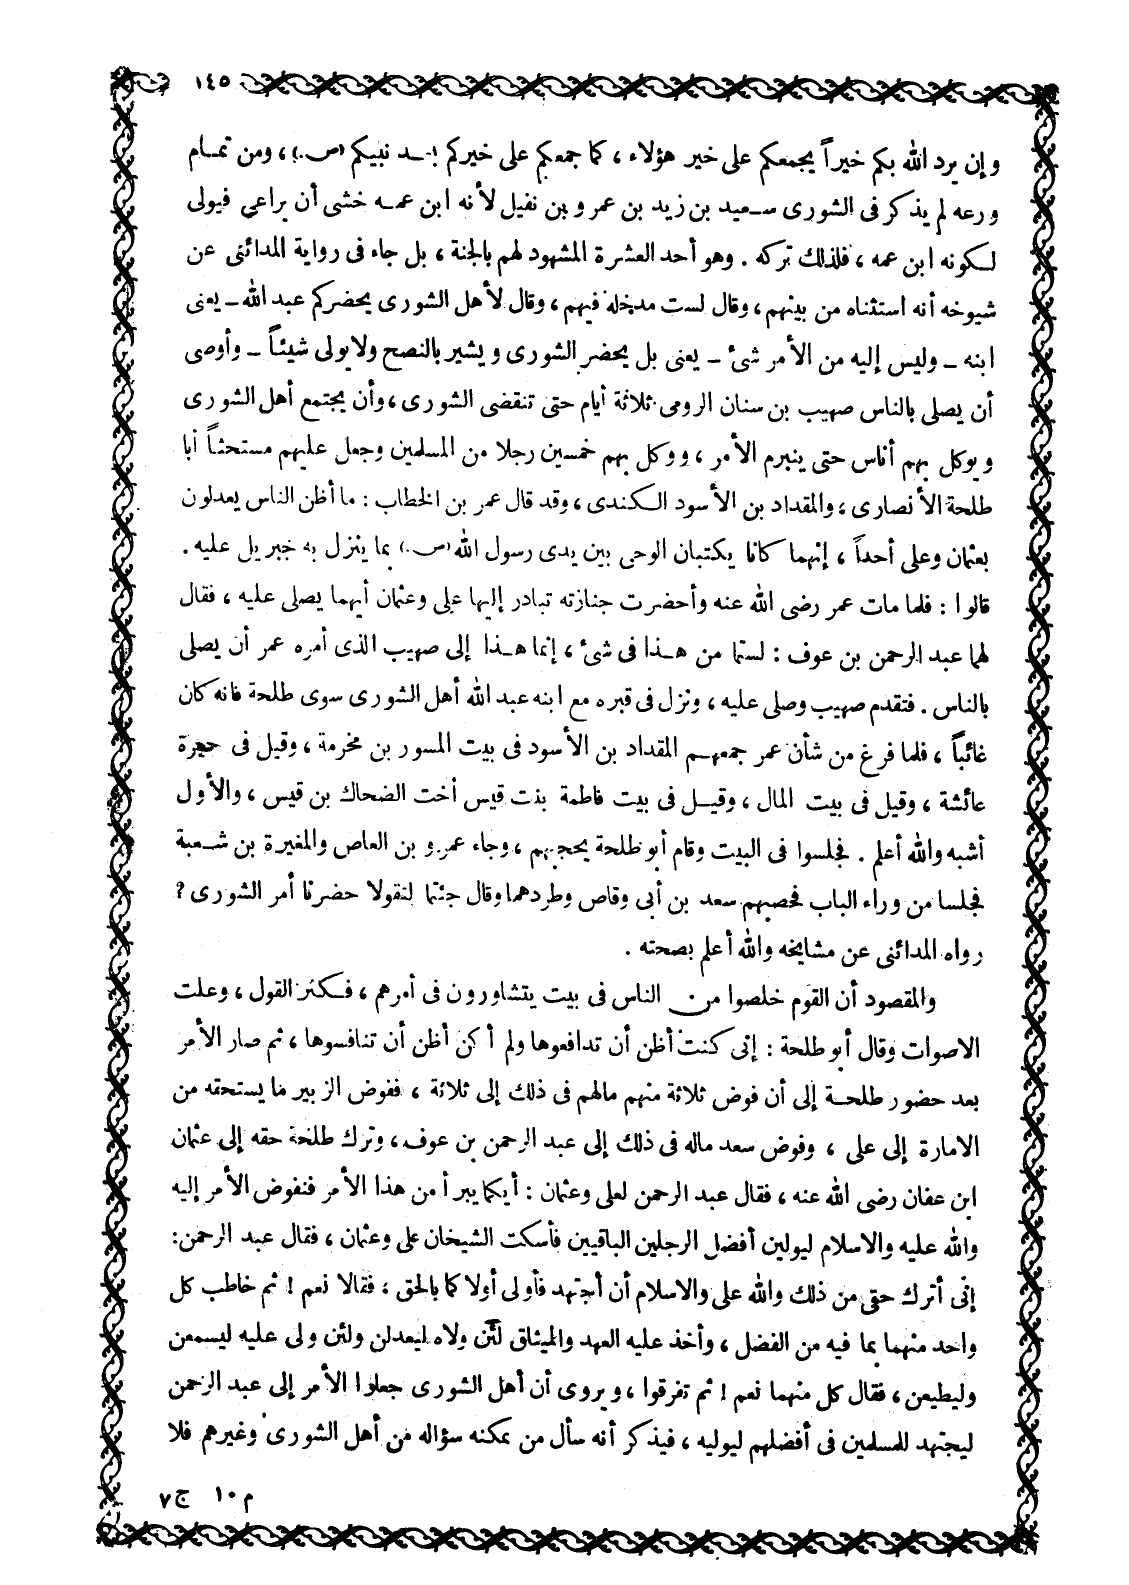 ١٤٥
وإن يرد الله بكم خيراً يجمعكم على خير هؤلاء ، كما جمعكم على خيركم بعد نبيكم (ص.) ، ومن تمام
ورعه لم يذكر فى الشورى سعيد بن زيد بن عمرو بن نفيل لأنه ابن عمه خشى أن يراعي فيولى
لكونه ابن عمه ، فلذلك تركه . وهو أحد العشرة المشهود لهم بالجنة ، بل جاء فى رواية المدائنى عن
شيوخه أنه استثناه من بينهم ، وقال لست مدخله فيهم ، وقال لأهل الشورى يحضركم عبد الله ــ يعنى
ابنه ــ وليس إليه من الأمر شئ ــ يعنى بل يحضر الشورى ويشير بالنصح ولا يولى شيئاً ــ وأوصى
أن يصلى بالناس صهيب بن سنان الرومى ثلاثة أيام حتى تنقضى الشورى ، وأن يجتمع أهل الشورى
ويوكل بهم أناس حتى ينبرم الأمر ، ووكل بهم خمسين رجلا من المسلمين وجعل عليهم مستحثاً أبا
طلحة الأنصارى ، والمقداد بن الأسود الكندى ، وقد قال عمر بن الخطاب : ما أظن الناس يعدلون
بعثمان وعلى أحداً ، إنهما كانا يكتبان الوحى بين يدى رسول الله (ص.) بما ينزل به جبريل عليه .
قالوا : فلما مات عمر رضى الله عنه وأحضرت جنازته تبادر إليها على وعثمان أيهما يصلى عليه ، فقال
لهما عبد الرحمن بن عوف : لستما من هذا فى شئ ، إنما هذا إلى صهيب الذى أمره عمر أن يصلى
بالناس . فتقدم صهيب وصلى عليه ، ونزل فى قبره مع ابنه عبد الله أهل الشورى سوى طلحة فانه كان
غائباً ، فلما فرغ من شأن عمر جمعهم المقداد بن الأسود فى بيت المسور بن مخرمة ، وقيل فى حجرة
عائشة ، وقيل فى بيت المال ، وقيل فى بيت فاطمة بنت قيس أخت الضحاك بن قيس ، والأول
أشبه والله أعلم . فجلسوا فى البيت وقام أبو طلحة يحجبهم ، وجاء عمرو بن العاص والمغيرة بن شعبة
فجلسا من وراء الباب فحصبهم سعد بن أبى وقاص وطردهما وقال جئتما لتقولا حضرنا أمر الشورى ؟
رواه المدائنى عن مشايخه والله أعلم بصحته .
والمقصود أن القوم خلصوا من الناس فى بيت يتشاورون فى أمرهم ، فكثر القول ، وعلت
الاصوات وقال أبو طلحة : إنى كنت أظن أن تدافعوها ولم أكن أظن أن تنافسوها ، ثم صار الأمر
بعد حضور طلحة إلى أن فوض ثلاثة منهم مالهم فى ذلك إلى ثلاثة ، ففوض الزبير ما يستحقه من
الامارة إلى على ، وفوض سعد ماله فى ذلك إلى عبد الرحمن بن عوف ، وترك طلحة حقه إلى عثمان
ابن عفان رضى الله عنه ، فقال عبد الرحمن لعلى وعثمان : أيكما يبرأ من هذا الأمر فنفوض الأمر إليه
والله عليه والاسلام ليولين أفضل الرجلين الباقيين فأسكت الشيخان على وعثمان ، فقال عبد الرحمن:
إنى أترك حقى من ذلك والله على والاسلام أن أجتهد فأولى أولا كما بالحق ، فقالا نعم ! ثم خاطب كل
واحد منهما بما فيه من الفضل ، وأخذ عليه العهد والميثاق لئن ولاه ليعدلن ولئن ولى عليه ليسمعن
وليطيعن ، فقال كل منهما نعم ! ثم تفرقوا ، ويروى أن أهل الشورى جعلوا الأمر إلى عبد الرحمن
ليجتهد للمسلمين فى أفضلهم ليوليه ، فيذكر أنه سأل من يمكنه سؤاله من أهل الشورى وغيرهم فلا
م ١٠ ج ٧